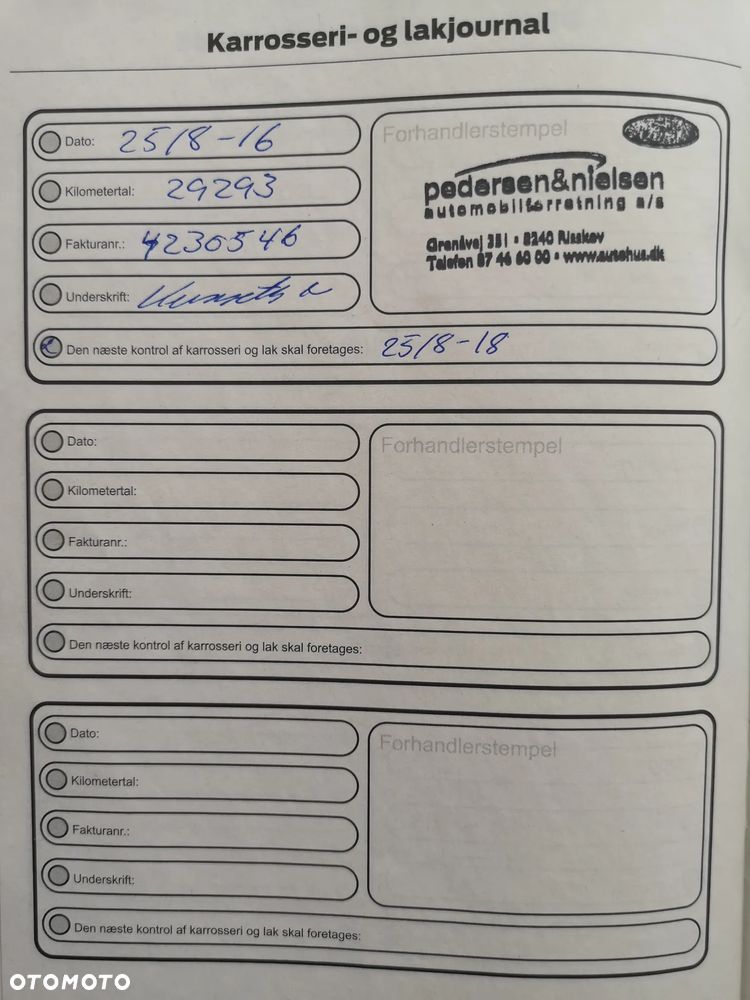 Karrosseri- og lakjournal
Dato: 25/8-16
Kilometertal: 29293
Fakturanr.: 4230546
Underskrift:
Forhandlerstempel
pedersen&nielsen
automobilforretning a/s
Grenåvej 351 • 8240 Risskov
Telefon 87 46 60 00 • www.autohus.dk
Den næste kontrol af karrosseri og lak skal foretages: 25/8-18
Dato:
Kilometertal:
Fakturanr.:
Underskrift:
Forhandlerstempel
Den næste kontrol af karrosseri og lak skal foretages:
Dato:
Kilometertal:
Fakturanr.:
Underskrift:
Forhandlerstempel
Den næste kontrol af karrosseri og lak skal foretages:
OTOMOTO